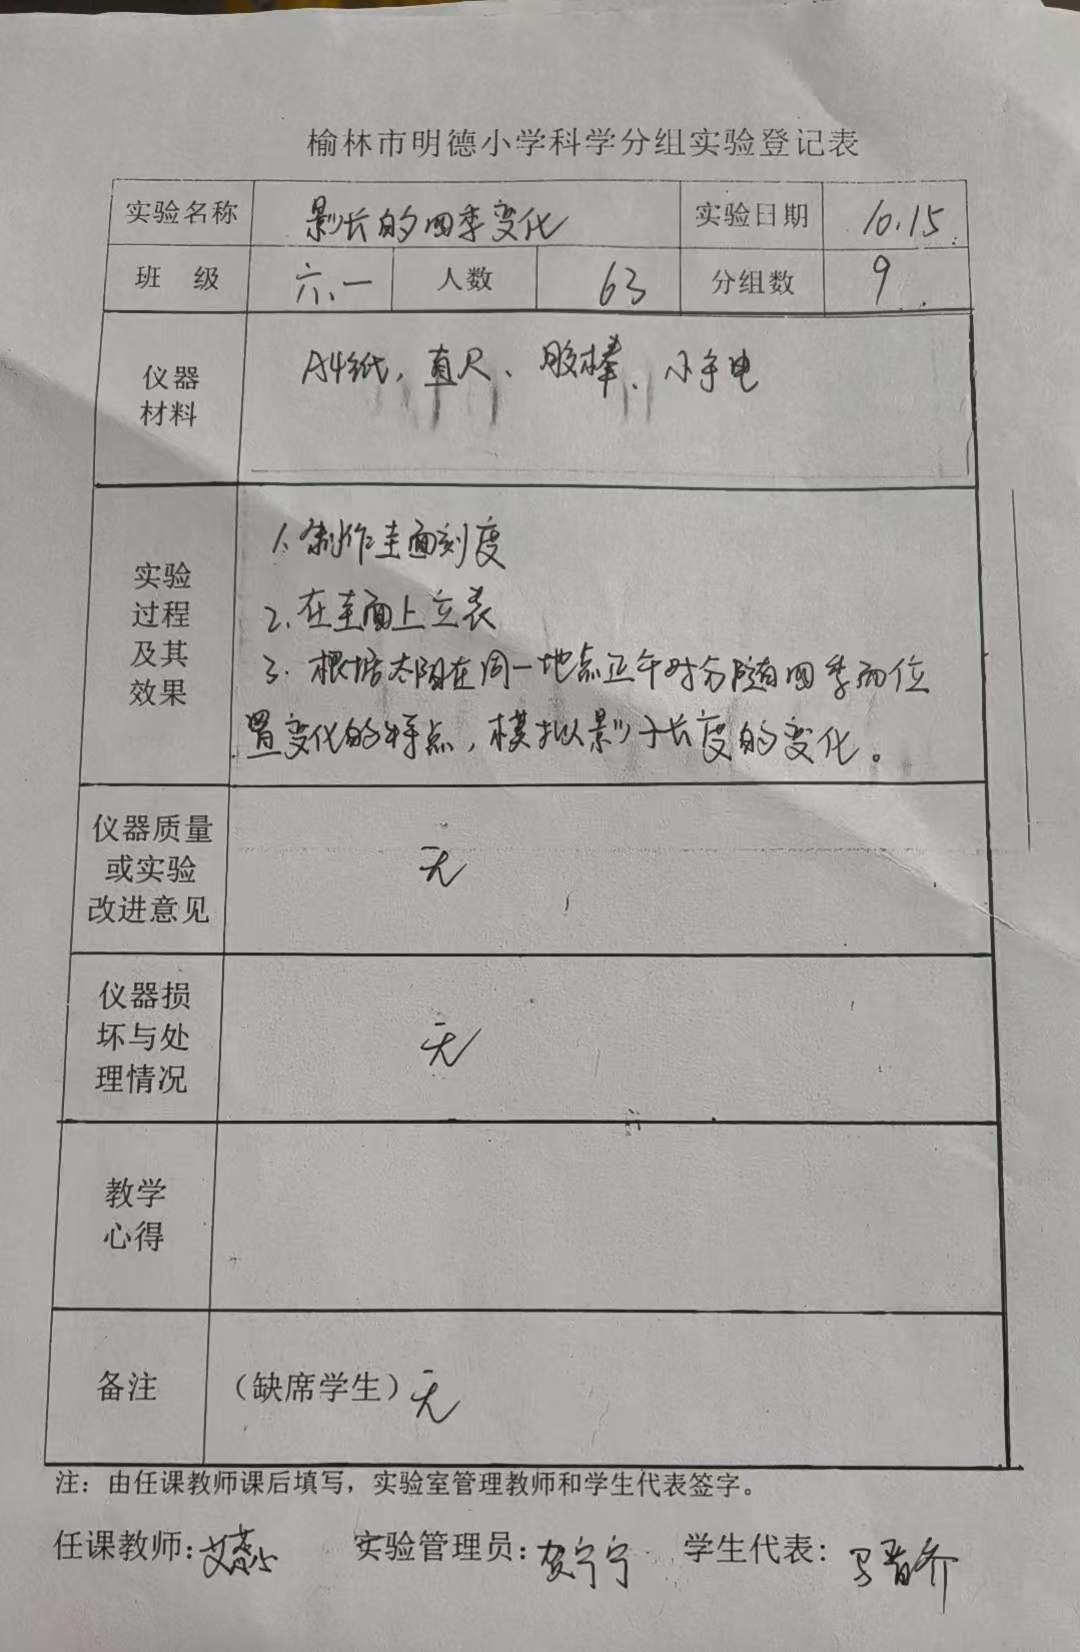 榆林市明德小学科学分组实验登记表
实验名称 影长的四季变化 实验日期 10.15.
班 级 六.一 人数 63 分组数 9
仪器
材料
A4纸，直尺、胶棒、小手电
实验
过程
及其
效果
1、制作圭面刻度
2、在圭面上立表
3、根据太阳在同一地点正午时分随四季而位
置变化的特点，模拟影子长度的变化。
仪器质量
或实验
改进意见
无
仪器损
坏与处
理情况
无
教学
心得
备注 （缺席学生）无
注：由任课教师课后填写，实验室管理教师和学生代表签字。
任课教师: 实验管理员: 贺宁宁 学生代表: